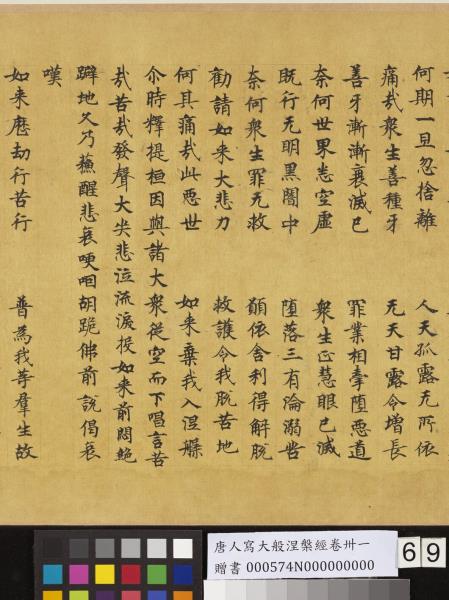 何期一旦忽捨離　人天孤露无所依
痛㢤衆生善種牙　无天甘露令增長
善牙漸漸衰滅已　罪業相牽墮惡道
奈何世界悉空虛　衆生正慧眼已滅
既行无明黑闇中　墮落三有淪溺㘝
奈何衆生罪无救　願依舍利得解脫
勸請如来大悲力　救護令我脫苦地
何其痛㢤此惡世　如来棄我入涅槃
尒時釋提桓因與諸大衆從空而下唱言苦
㢤苦㢤發聲大哭悲泣流淚投如来前悶絶
躃地久乃蘓醒悲哀哽咽胡跪佛前說偈哀
嘆
如来歷劫行苦行　普為我等羣生故
唐人寫大般涅槃經卷卅一
贈書 000574N000000000
69